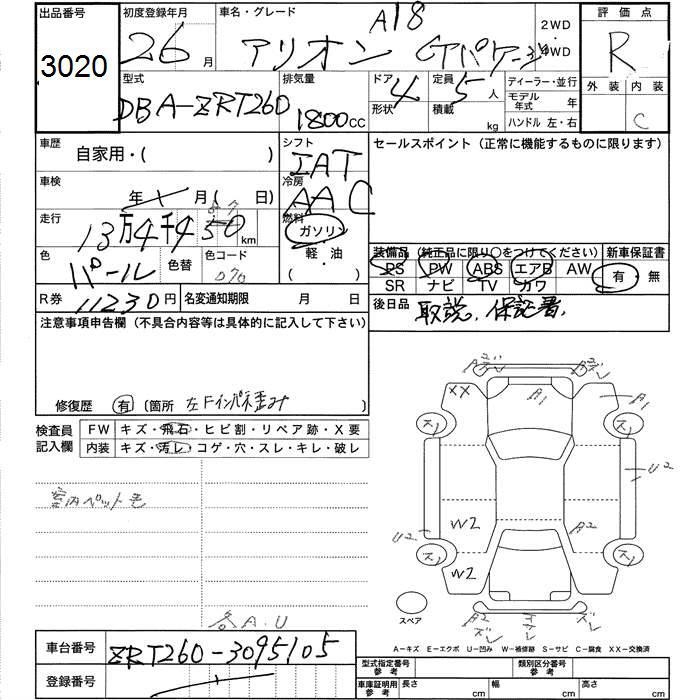 出品番号 初度登録年月 車名・グレード 評価点
3020 26月 アリオン A18 Gパケージ 2WD 4WD R
外装 内装
C
型式 排気量 ドア 定員 ディーラー・並行
DBA-ZRT260 1800cc 4 5人 モデル年式 年
形状 積載 kg ハンドル 左・右
車歴 自家用・( ) シフト IAT セールスポイント（正常に機能するものに限ります）
車検 年 月( 日) 冷房 AAC
走行 13万4千450km 燃料 ガソリン
軽・油
( )
色 パール 色替 色コード 070
装備品（純正品に限り〇をつけてください） 新車保証書
PS PW ABS エアB AW 有・無
SR ナビ TV カワ
R券 11230円 名変通知期限 月 日 後日品 取説、保証書、
注意事項申告欄（不具合内容等は具体的に記入して下さい）
修復歴 有 〔箇所 左Fインパネ歪み 〕
検査員記入欄 FW キズ・飛石・ヒビ割・リペア跡・X要
内装 キズ・汚レ・コゲ・穴・スレ・キレ・破レ
室内ペット毛
各A.U
XX A1 A1
U2
U2 W2 A2
W2
スペア
A2
A－キズ E－エクボ U－凹み W－補修跡 S－サビ C－腐食 XX－交換済
車台番号 ZRT260-3095105
登録番号
型式指定番号参考 類別区分番号参考
車庫証明用参考 長さ cm 幅 cm 高さ cm